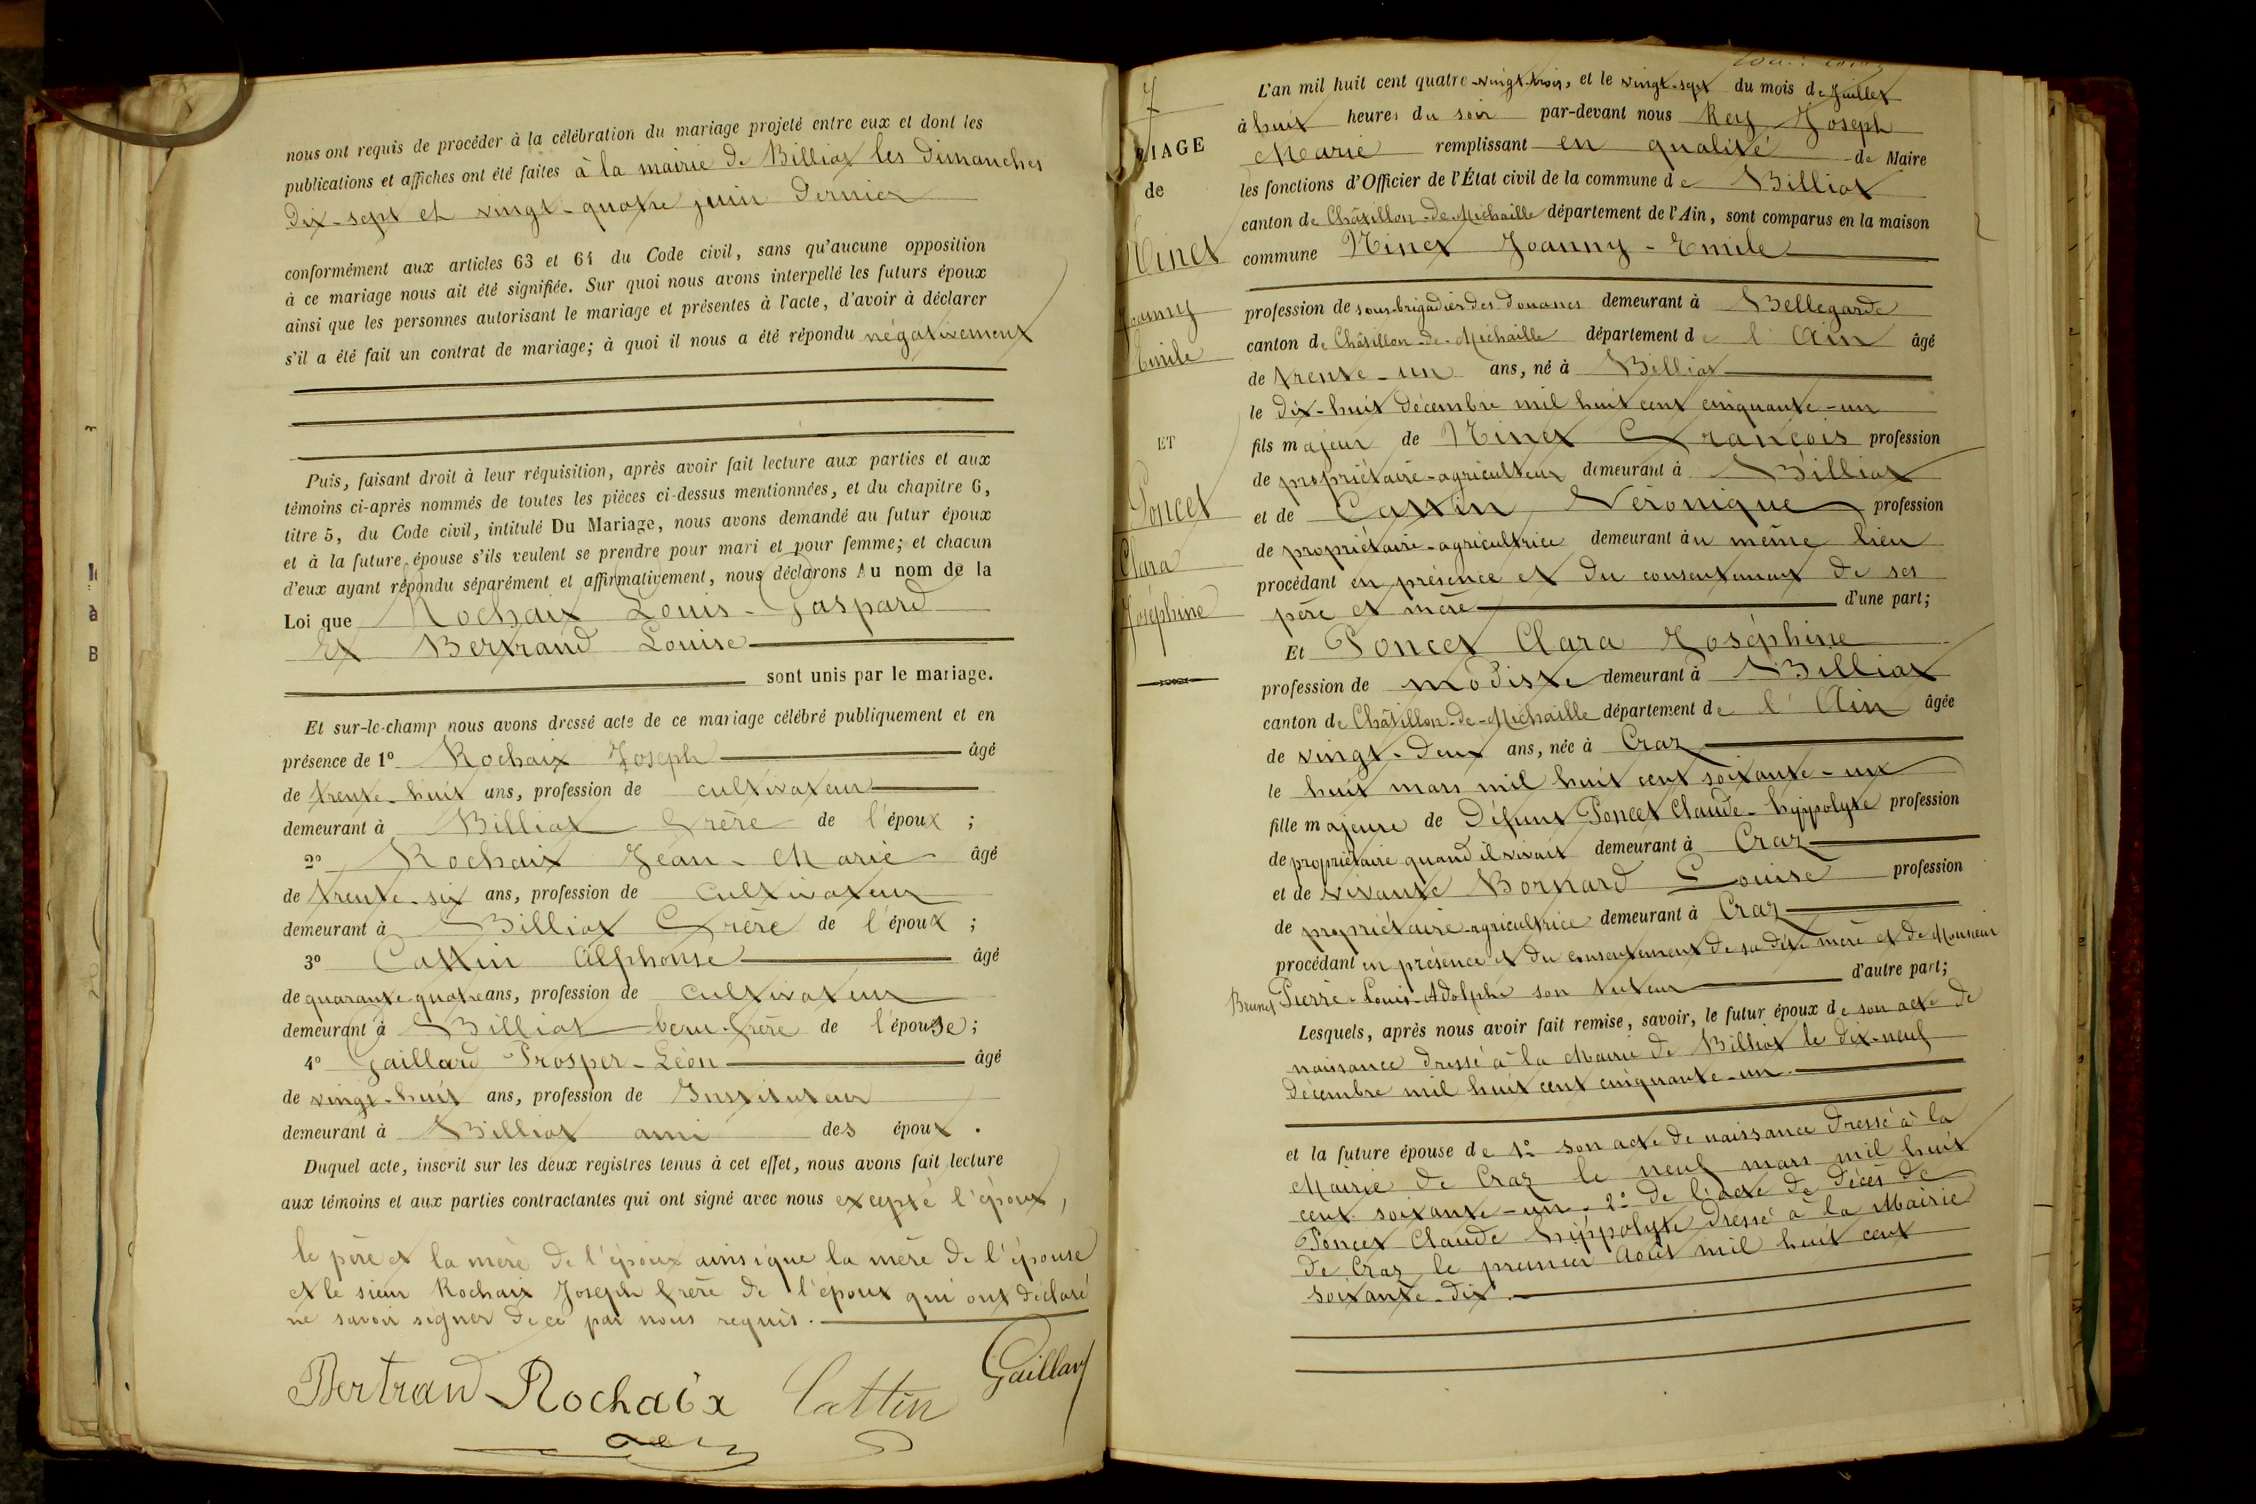 nous ont requis de procéder à la célébration du mariage projeté entre eux et dont les
publications et affiches ont été faites à la mairie de Billiat les dimanches
dix-sept et vingt-quatre juin dernier
conformément aux articles 63 et 64 du Code civil, sans qu'aucune opposition
à ce mariage nous ait été signifiée. Sur quoi nous avons interpellé les futurs époux
ainsi que les personnes autorisant le mariage et présentes à l'acte, d'avoir à déclarer
s'il a été fait un contrat de mariage; à quoi il nous a été répondu négativement
Puis, faisant droit à leur réquisition, après avoir fait lecture aux parties et aux
témoins ci-après nommés de toutes les pièces ci-dessus mentionnées, et du chapitre 6,
titre 5, du Code civil, intitulé Du Mariage, nous avons demandé au futur époux
et à la future épouse s'ils veulent se prendre pour mari et pour femme; et chacun
d'eux ayant répondu séparément et affirmativement, nous déclarons Au nom de la
Loi que Rochaix Louis-Gaspard
Et Bertrand Louise
sont unis par le mariage.
Et sur-le-champ nous avons dressé acte de ce mariage célébré publiquement et en
présence de 1° Rochaix Joseph âgé
de trente-huit ans, profession de cultivateur
demeurant à Billiat frère de l'époux ;
2° Rochaix Jean-Marie âgé
de trente-six ans, profession de cultivateur
demeurant à Billiat frère de l'époux ;
3° Cattin Alphonse âgé
de quarante-quatre ans, profession de cultivateur
demeurant à Billiat beau-frère de l'épouse ;
4° Gaillard Prosper-Léon âgé
de vingt-huit ans, profession de Instituteur
demeurant à Billiat ami des époux .
Duquel acte, inscrit sur les deux registres tenus à cet effet, nous avons fait lecture
aux témoins et aux parties contractantes qui ont signé avec nous excepté l'époux,
le père et la mère de l'époux ainsi que la mère de l'épouse
et le sieur Rochaix Joseph frère de l'époux qui ont déclaré
ne savoir signer de ce par nous requis.
Bertrand Rochaix Cattin Gaillard
7
RIAGE
de
Ninet
Joanny
Emile
ET
Poncet
Clara
Joséphine
L'an mil huit cent quatre-vingt-trois, et le vingt-sept du mois de Juillet
à huit heures du soir par-devant nous Rey Joseph
Marie remplissant en qualité de Maire
les fonctions d'Officier de l'État civil de la commune de Billiat
canton de Châtillon-de-Michaille département de l'Ain, sont comparus en la maison
commune Ninet Joanny-Emile
profession de sous-brigadier des Douanes demeurant à Bellegarde
canton de Châtillon-de-Michaille département de l'Ain âgé
de trente-un ans, né à Billiat
le dix-huit décembre mil huit cent cinquante-un
fils majeur de Ninet François profession
de propriétaire-agriculteur demeurant à Billiat
et de Cattin Véronique profession
de propriétaire-agricultrice demeurant au même lieu
procédant en présence et du consentement de ses
père et mère d'une part;
Et Poncet Clara Joséphine
profession de modiste demeurant à Billiat
canton de Châtillon-de-Michaille département de l'Ain âgée
de vingt-deux ans, née à Craz
le huit mars mil huit cent soixante-un
fille majeure de Défunt Poncet Claude-hyppolyte profession
de propriétaire quand il vivait demeurant à Craz
et de vivante Bornard Louise profession
de propriétaire-agricultrice demeurant à Craz
procédant en présence et du consentement de sa dite mère et de Monsieur
Brunet Pierre-Louis-Adolphe son tuteur d'autre part;
Lesquels, après nous avoir fait remise, savoir, le futur époux de son acte de
naissance dressé à la Mairie de Billiat le dix-neuf
décembre mil huit cent cinquante-un.
et la future épouse de 1° son acte de naissance dressé à la
Mairie de Craz le neuf mars mil huit
cent soixante-un. 2° de l'acte de décès de
Poncet Claude hyppolyte dressé à la Mairie
de Craz le premier Août mil huit cent
soixante-dix.